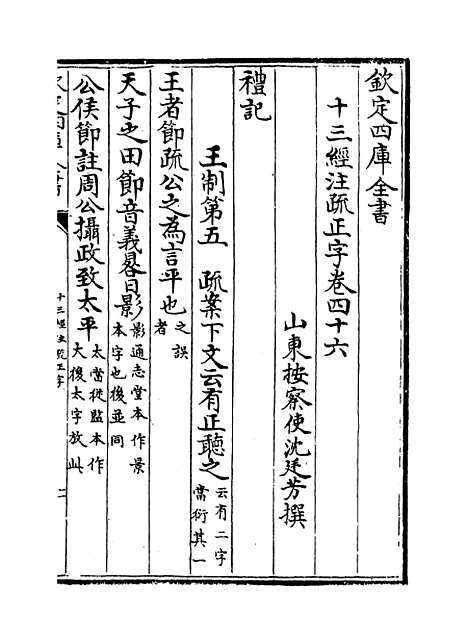 欽定四庫全書
十三經注疏正字卷四十六
山東按察使沈廷芳撰
禮記
王制第五 疏案下文云有正聽之云有二字當衍其一
王者節疏公之為言平也之誤者
天子之田節音義晷日影影通志堂本作景本字也後並同
公侯節註周公攝政致太平太當從監本作大後太字放此
十三經注疏正字